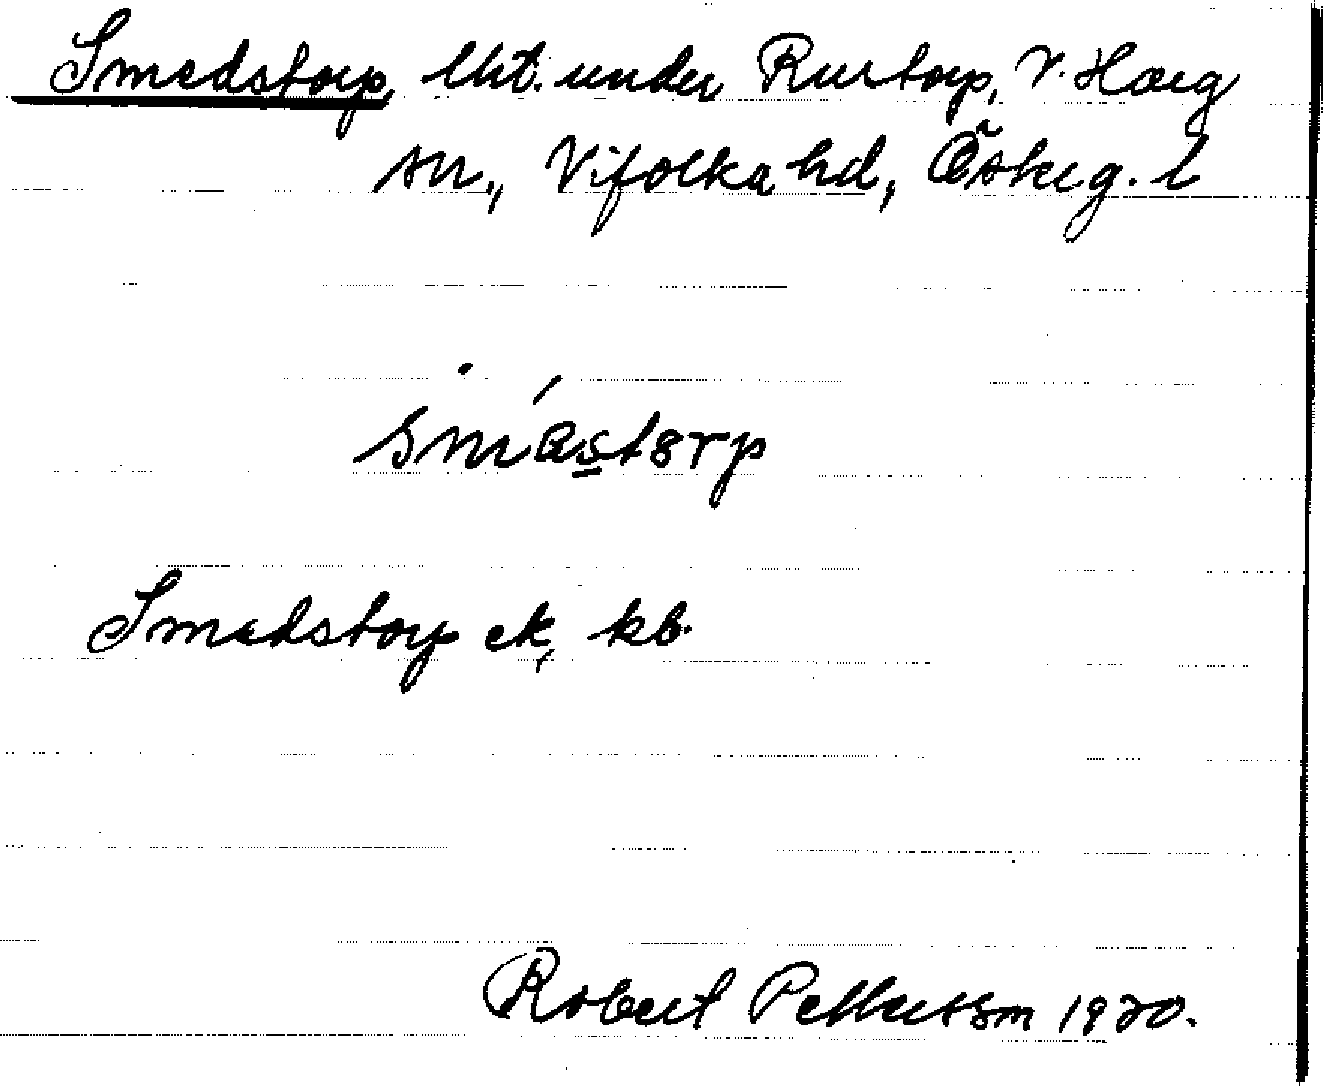 Smedstorp, lht. under Rustorp, V. Harg
sn., Vifolka hd, Österg. l
smæ̀storp
Smedstorp ek, kb.
Robert Pettersson 1920.